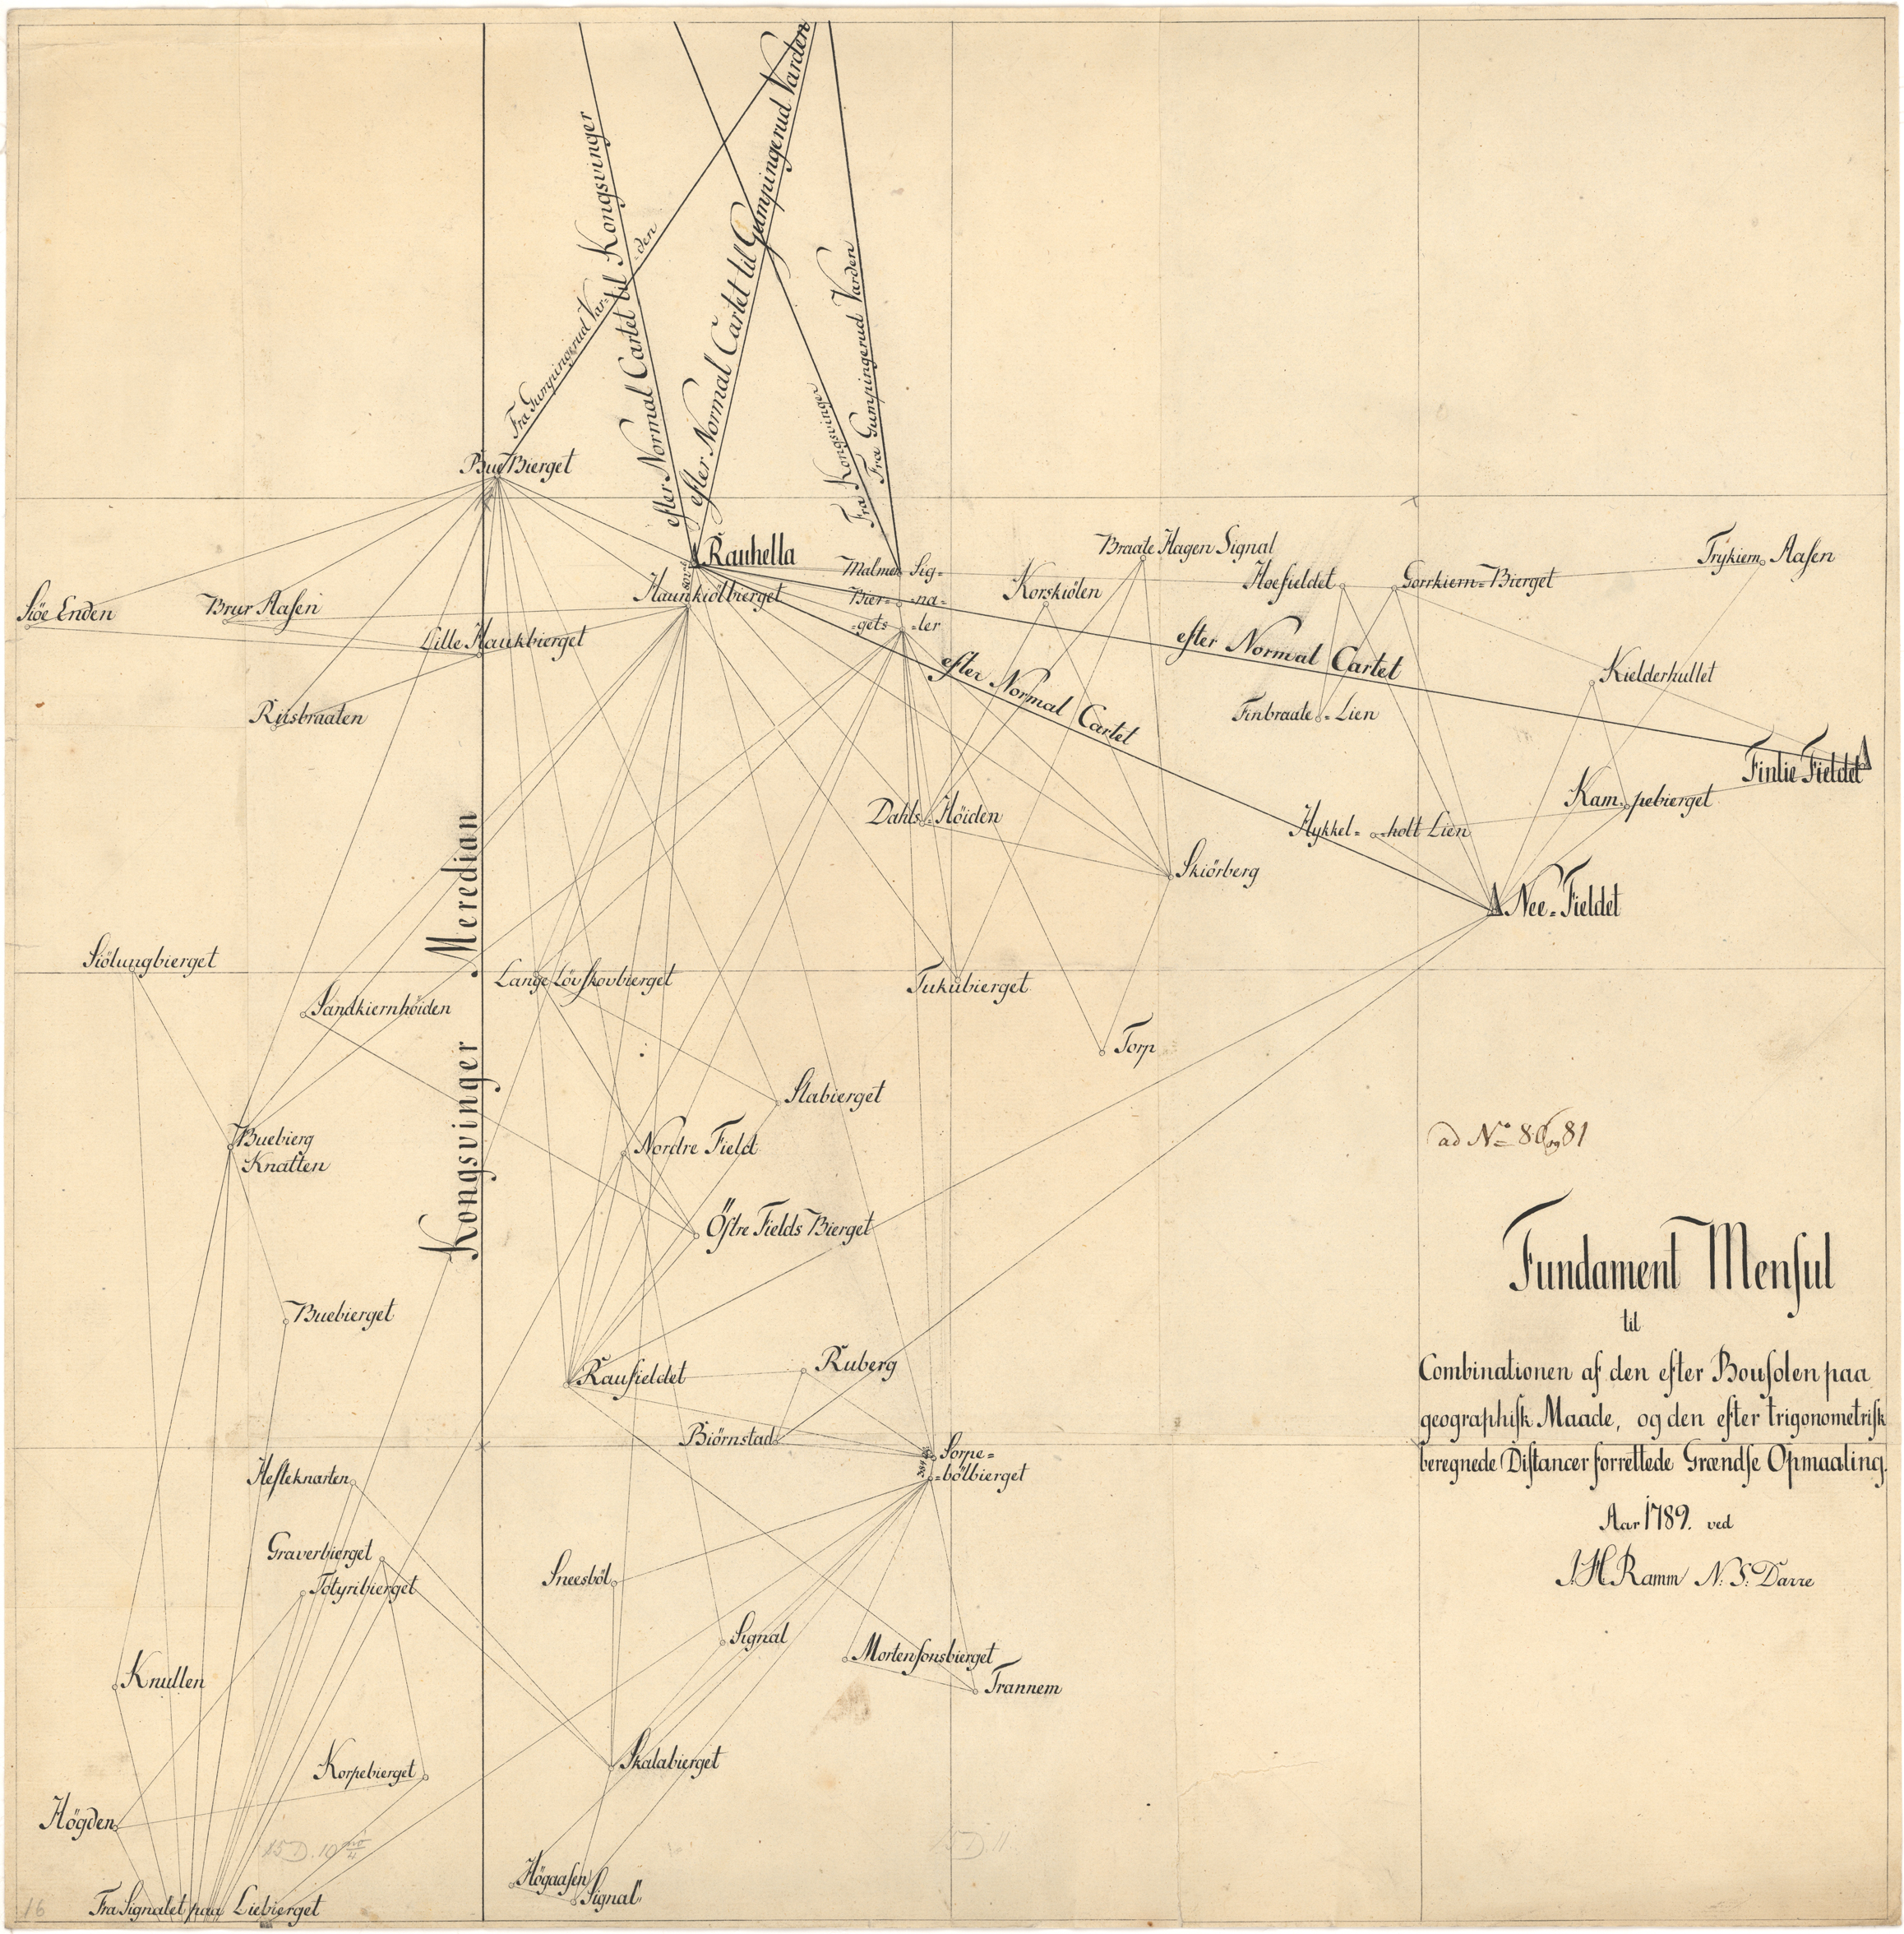 efter Normal Cartet til Kongsvinger
efter Normal Cartet til Gumpingerud Varden
Fra Gumpingerud Var=
=den
Fra Kongsvinger
Fra Gumpingerud Varden
Bue Bierget
Rauhella
Haunkiölbierget
Malmer Sig=
Bier= =na=
=gets =ler
Korskiölen
Braate Hagen Signal
Hoefieldet
Gorrkiern=Bierget
Trykiern Aasen
Siöe Enden
Brur Aasen
Lille Haukbierget
Riisbraaten
efter Normal Cartet
efter Normal Cartet
Finbraate=Lien
Kielderhullet
Finlie Fieldet
Kam=pebierget
Dahls=Höiden
Hykkel=holt Lien
Skiörberg
Nee=Fieldet
Kongsvinger Meredian
Siölungbierget
Sandkiernhöiden
Lange Löuskovbierget
Tukubierget
Torp
Stabierget
Buebierg
Knatten
Nordre Field
Östre Fields Bierget
Buebierget
Raufieldet
Ruberg
Biörnstad
Sorpe=
=bölbierget
Hesteknarten
Graverbierget
Totyribierget
Sneesböl
Signal
Mortensonsbierget
Trannem
Knullen
Korpebierget
Skalabierget
Högden
Högaasen
Signal
Fra Signalet paa Liebierget
16
ad No 80 og 81
Fundament Mensul
til
Combinationen af den efter Bousolen paa
geographisk Maade, og den efter trigonometrisk
beregnede Distancer forrettede Grændse Opmaaling.
Aar 1789. ved
J. H. Ramm N. S. Darre